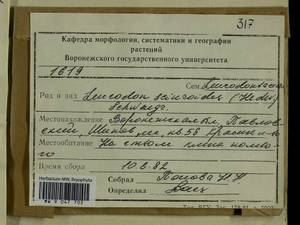 317
Кафедра морфологии, систематики и географии
растений
Воронежского государственного университета
1619
Сем. Leucodontaceae
Род и вид Leucodon sciuroides (Hedw.)
Schwaegr.
Местонахождение Воронежская обл., Павлов-
ский, кв. 58
Местообитание На стволе клена полево-
го
Время сбора 10.8.82
Собрал Попова Н Н
Определил
Herbarium MW, Bryophyta
MW 9 047 703